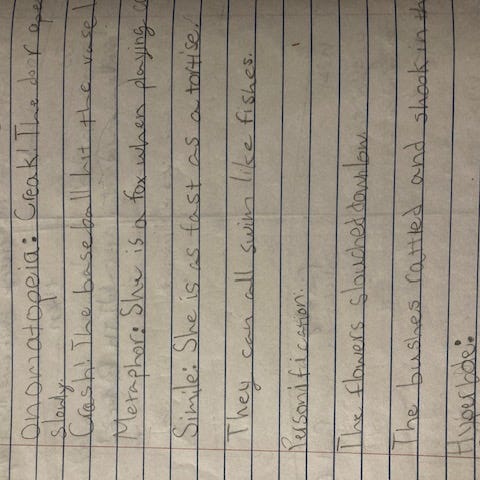 Onomatopeia: Creak! The door ope
slowly.
Crash! The baseball hit the vase!
Metaphor: She is a fox when playing c
Simile: She is as fast as a tortise.
They can all swim like fishes.
Personification:
The flowers slouched down low.
The bushes rattled and shook in th
Hyperbole: